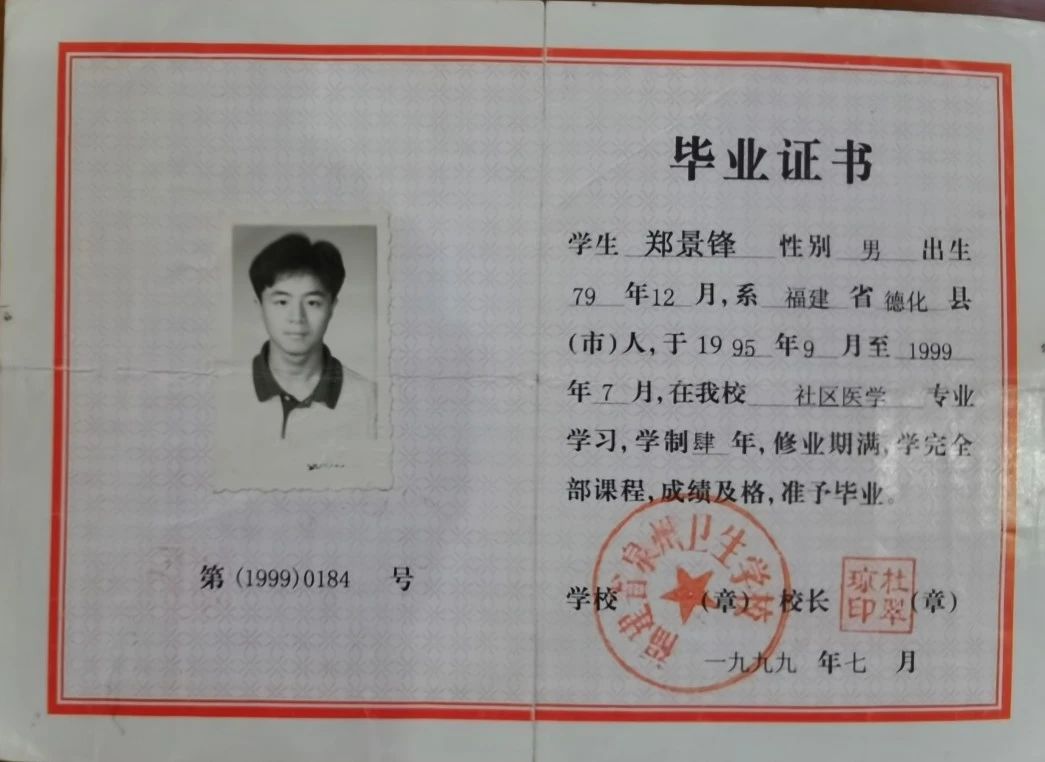 毕业证书
学生 郑景锋 性别 男 出生
79 年12 月,系 福建 省 德化 县
(市)人,于 19 95 年 9 月至 1999
年 7 月,在我校 社区医学 专业
学习,学制肆 年,修业期满,学完全
部课程,成绩及格,准予毕业。
第 (1999)0184 号
学校 (章) 校长 (章)
福建省泉州卫生学校
杜翠
琼印
一九九九 年七 月